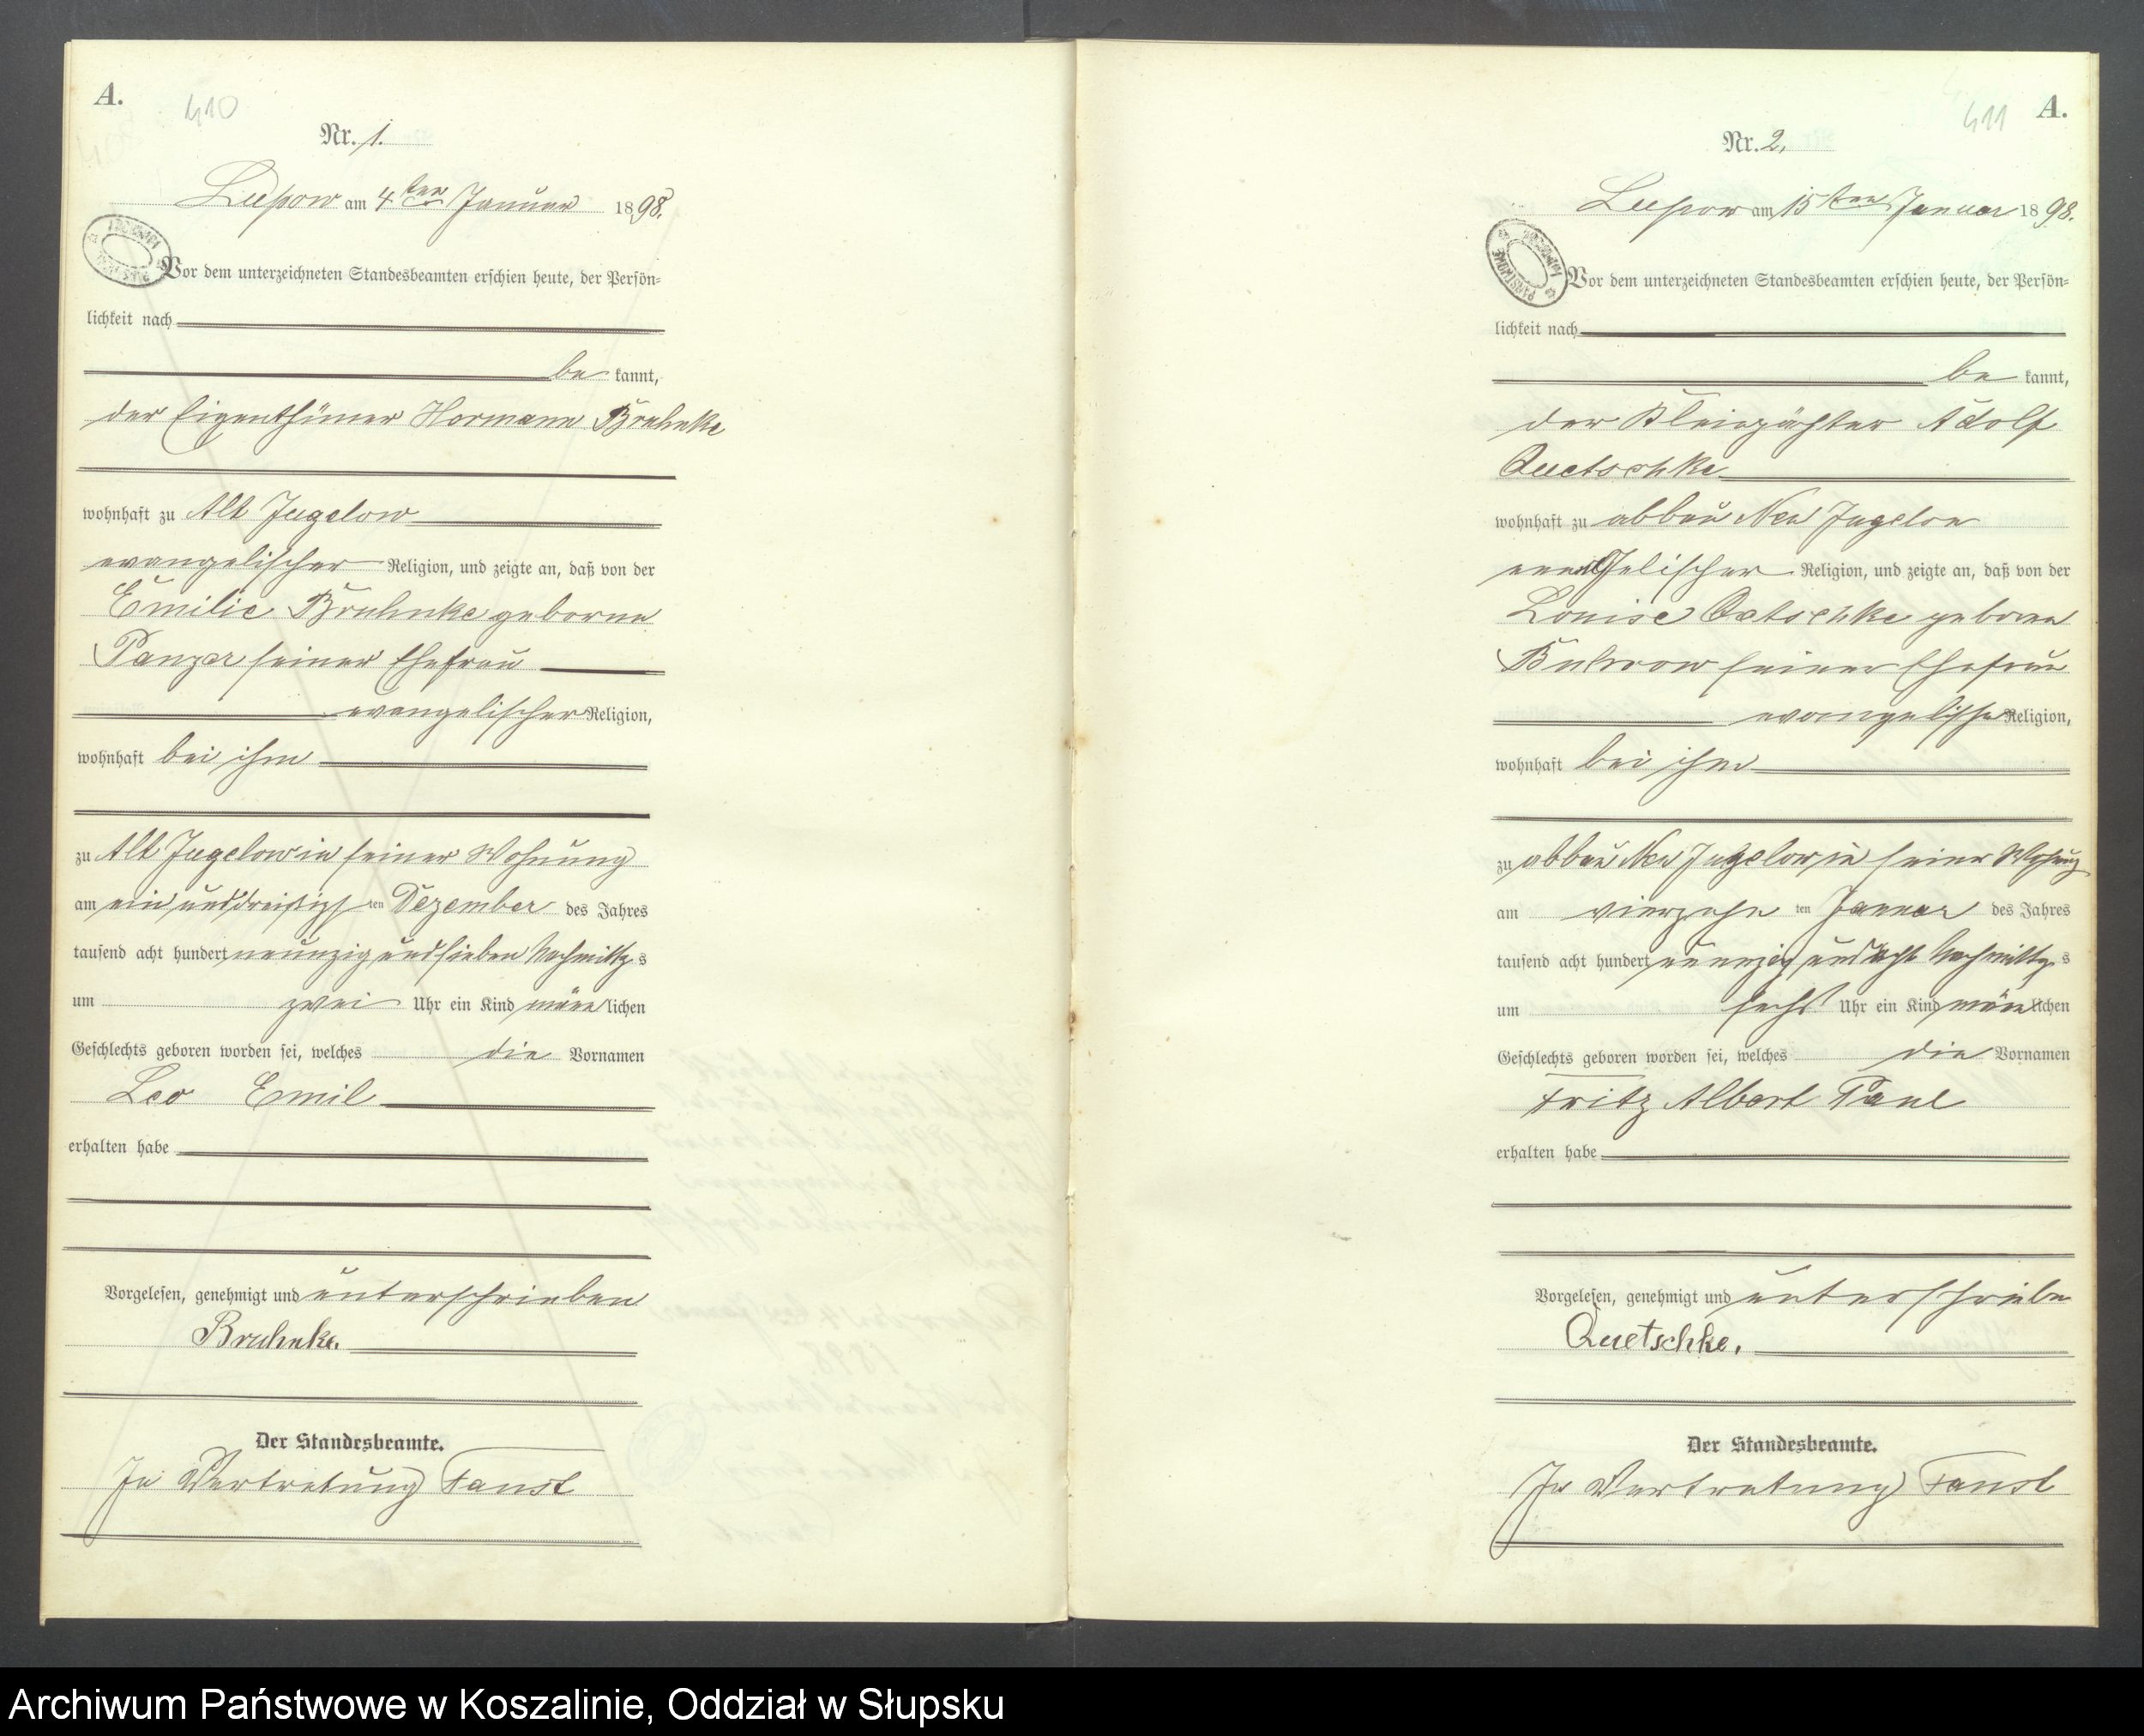 A.
410
Nr. 1.
Lupow am 4ten Januar 1898.
Vor dem unterzeichneten Standesbeamten erschien heute, der Persön=
lichkeit nach
be kannt,
der Eigenthümer Hermann Bruhnke
wohnhaft zu Alt Jugelow
evangelischer Religion, und zeigte an, daß von der
Emilie Bruhnke geborne
Panzer seiner Ehefrau
evangelischer Religion,
wohnhaft bei ihm
zu Alt Jugelow in seiner Wohnung
am ein und dreißigs ten Dezember des Jahres
tausend acht hundert neunzig und sieben Nachmittg s
um zwei Uhr ein Kind männ lichen
Geschlechts geboren worden sei, welches die Vornamen
Leo Emil
erhalten habe
Vorgelesen, genehmigt und unterschrieben
Bruhnke.
Der Standesbeamte.
In Vertretung Faust
A.
411
Nr. 2.
Lupow am 15ten Januar 1898.
Vor dem unterzeichneten Standesbeamten erschien heute, der Persön=
lichkeit nach
be kannt,
der Kleinpächter Adolf
Quetschke
wohnhaft zu abbau Neu Jugelow
Religion, und zeigte an, daß von der
Louise Quetschke geborne
seiner Ehefrau
evangelischer Religion,
wohnhaft bei ihm
zu abbau Neu Jugelow in seiner Wohnung
am vierzehn ten Januar des Jahres
tausend acht hundert neunzig und acht Nachmittg s
um sechs Uhr ein Kind männ lichen
Geschlechts geboren worden sei, welches die Vornamen
Fritz Albert Paul
erhalten habe
Vorgelesen, genehmigt und unterschrieben
Quetschke.
Der Standesbeamte.
In Vertretung Faust
Archiwum Państwowe w Koszalinie, Oddział w Słupsku